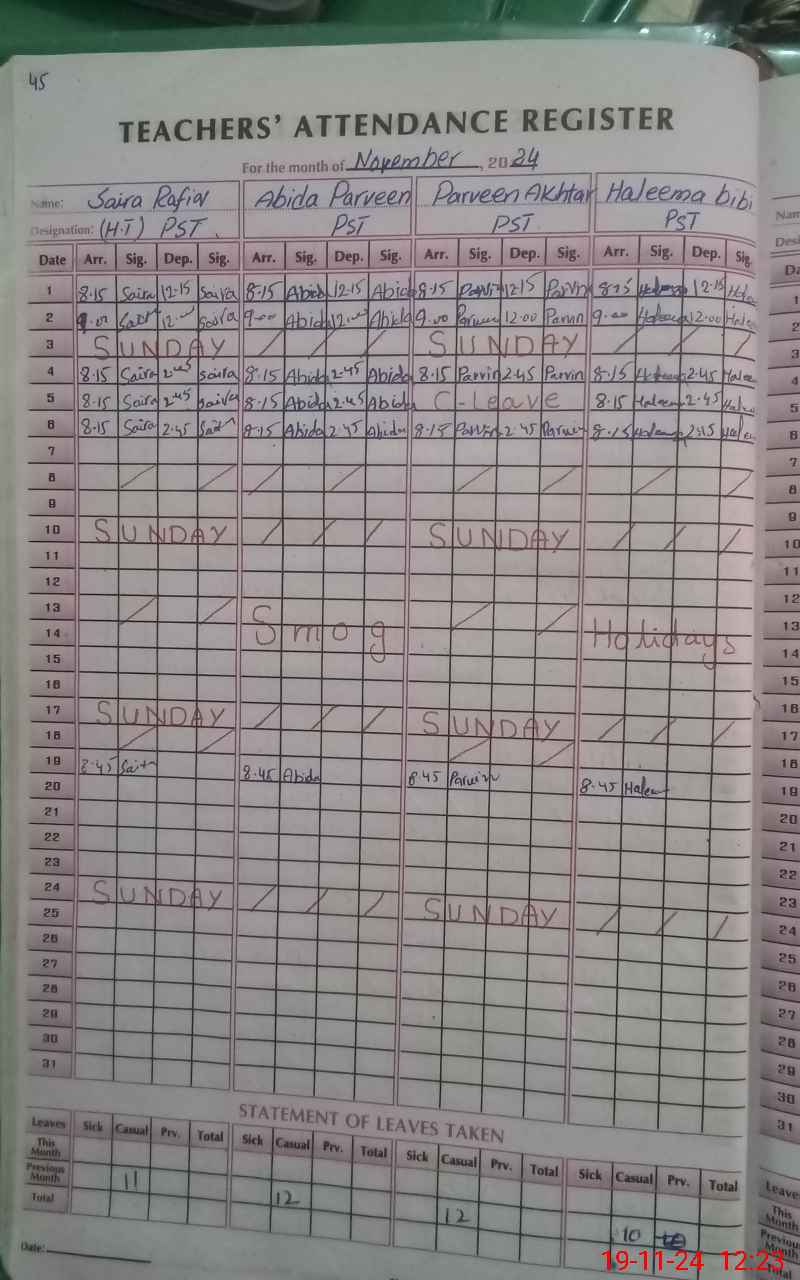 45
TEACHERS' ATTENDANCE REGISTER
For the month of November, 2024
Name: Saira Rafiq Abida Parveen Parveen Akhtar Haleema bibi
Designation: (H.T) PST. PST PST. PST
Date Arr. Sig. Dep. Sig. Arr. Sig. Dep. Sig. Arr. Sig. Dep. Sig. Arr. Sig. Dep. Sig.
1 8.15 Saira 12.15 Saira 8.15 Abida 12.15 Abida 8.15 Parvin 12.15 Parvin 8.15 12.15
2 9.00 12.00 Saira 9.00 Abida 12.00 Abida 9.00 12.00 Parvin 9.00 12.00
3 SUNDAY / / / SUNDAY / / /
4 8.15 Saira 2.45 Saira 8.15 Abida 2.45 Abida 8.15 Parvin 2.45 Parvin 8.15 2.45
5 8.15 Saira 2.45 Saira 8.15 Abida 2.45 Abida C-leave 8.15 2.45
6 8.15 Saira 2.45 8.15 Abida 2.45 Abida 8.15 Parvin 2.45 8.15
7
8
9
10 SUNDAY / / / SUNDAY / / /
11
12
13
14 Smog Holidays
15
16
17 SUNDAY / / / SUNDAY / / /
18
19 8.45 8.45 Abida 8.45 8.45
20
21
22
23
24 SUNDAY / / / SUNDAY / / /
25
26
27
28
29
30
31
STATEMENT OF LEAVES TAKEN
Leaves Sick Casual Prv. Total Sick Casual Prv. Total Sick Casual Prv. Total Sick Casual Prv. Total
This Month
Previous Month 11 12 12 10
Total
Date:
19-11-24 12:23